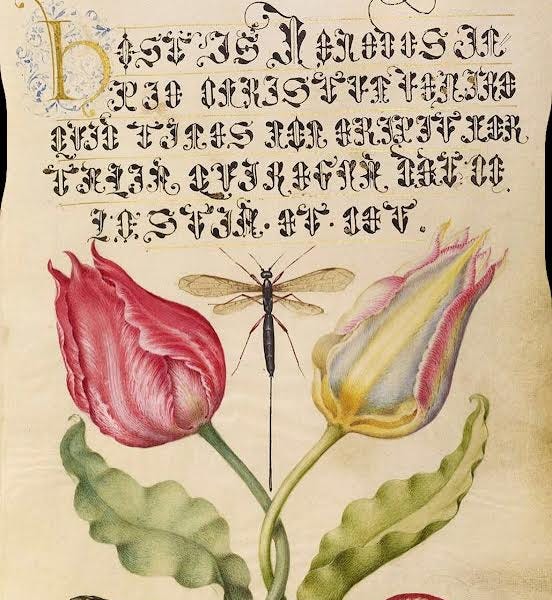 HOSTIS HERODES IM
PIE CHRISTVM VENIRE
QVID TIMES NON ERIPIT MOR
TALIA QVI REGNA DAT CO
LESTIA. ET. CET.